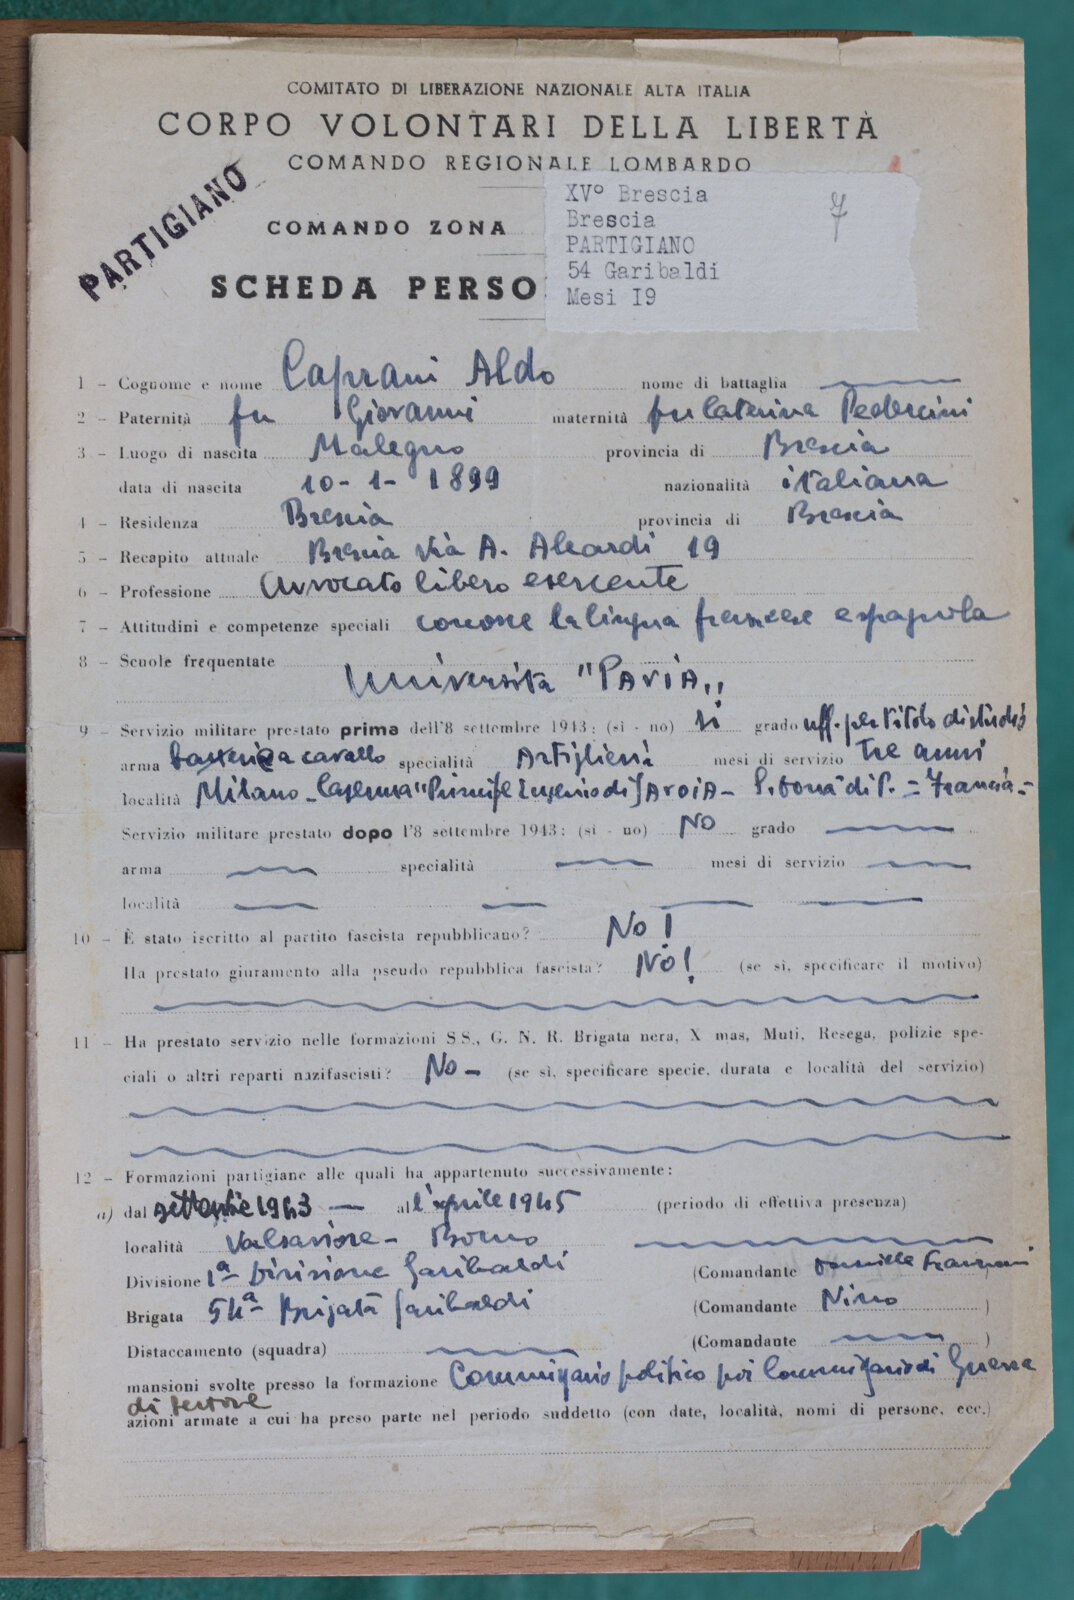 COMITATO DI LIBERAZIONE NAZIONALE ALTA ITALIA
CORPO VOLONTARI DELLA LIBERTÀ
COMANDO REGIONALE LOMBARDO
PARTIGIANO
COMANDO ZONA
SCHEDA PERSO
XV° Brescia
Brescia
PARTIGIANO
54 Garibaldi
Mesi I9
7
1 - Cognome e nome Caprani Aldo nome di battaglia
2 - Paternità fu Giovanni maternità fu Caterina Pedercini
3 - Luogo di nascita Malegno provincia di Brescia
data di nascita 10-1-1899 nazionalità italiana
4 - Residenza Brescia provincia di Brescia
5 - Recapito attuale Brescia Via A. Aleardi 19
6 - Professione Avvocato libero esercente
7 - Attitudini e competenze speciali conosce la lingua francese espagnola
8 - Scuole frequentate
Università "PAVIA"
9 - Servizio militare prestato prima dell'8 settembre 1943: (sì - no) si grado uff. per titolo di studi
arma batteria a cavallo specialità Artiglieria mesi di servizio tre anni
località Milano - Caserma "Principe Eugenio di SAVOIA - S. Donà di P. = Francia -
Servizio militare prestato dopo l'8 settembre 1943: (sì - no) NO grado
arma specialità mesi di servizio
località
10 - È stato iscritto al partito fascista repubblicano? No!
Ha prestato giuramento alla pseudo repubblica fascista? NO! (se sì, specificare il motivo)
11 - Ha prestato servizio nelle formazioni SS., G. N. R. Brigata nera, X mas, Muti, Resega, polizie spe-
ciali o altri reparti nazifascisti? No - (se sì, specificare specie, durata e località del servizio)
12 - Formazioni partigiane alle quali ha appartenuto successivamente:
a) dal settembre 1943 — al l'aprile 1945 (periodo di effettiva presenza)
località Valsaviore - Borno
Divisione 1ª Divisione Garibaldi (Comandante
Brigata 54ª Brigata Garibaldi (Comandante Nino )
Distaccamento (squadra) (Comandante )
mansioni svolte presso la formazione Commissario politico poi Commissario di Guerra
di settore
azioni armate a cui ha preso parte nel periodo suddetto (con date, località, nomi di persone, ecc.)